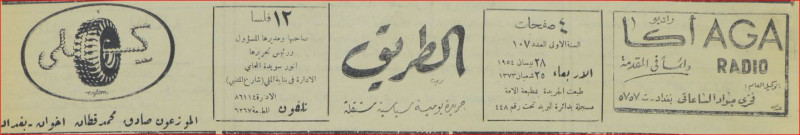 راديو
أكا AGA
RADIO
دائماً في المقدمة
الوكيل العام:
فوزي جواد الساعاتي بغداد ت ٥٧٥٧
٤ صفحات
السنة الاولى العدد ١٠٧
الاربعاء ٢٨ نيسان ١٩٥٤
٢٥ شعبان ١٣٧٣
طبعت الجريدة بمطبعة الامة
مسجلة بدائرة البريد تحت رقم ٤٤٨
الطريق
جريدة يومية سياسية مستقلة
١٢ فلسا
صاحبها ومديرها المسؤول
ورئيس تحريرها
انور سويدة المحامي
الادارة في بناية الملي (شارع المتنبي)
تلفون الادارة ٨٦١١٤
المطبعة ٦٣٦٧
كيلي
الموزعون صادق محمد قطان اخوان - بغداد